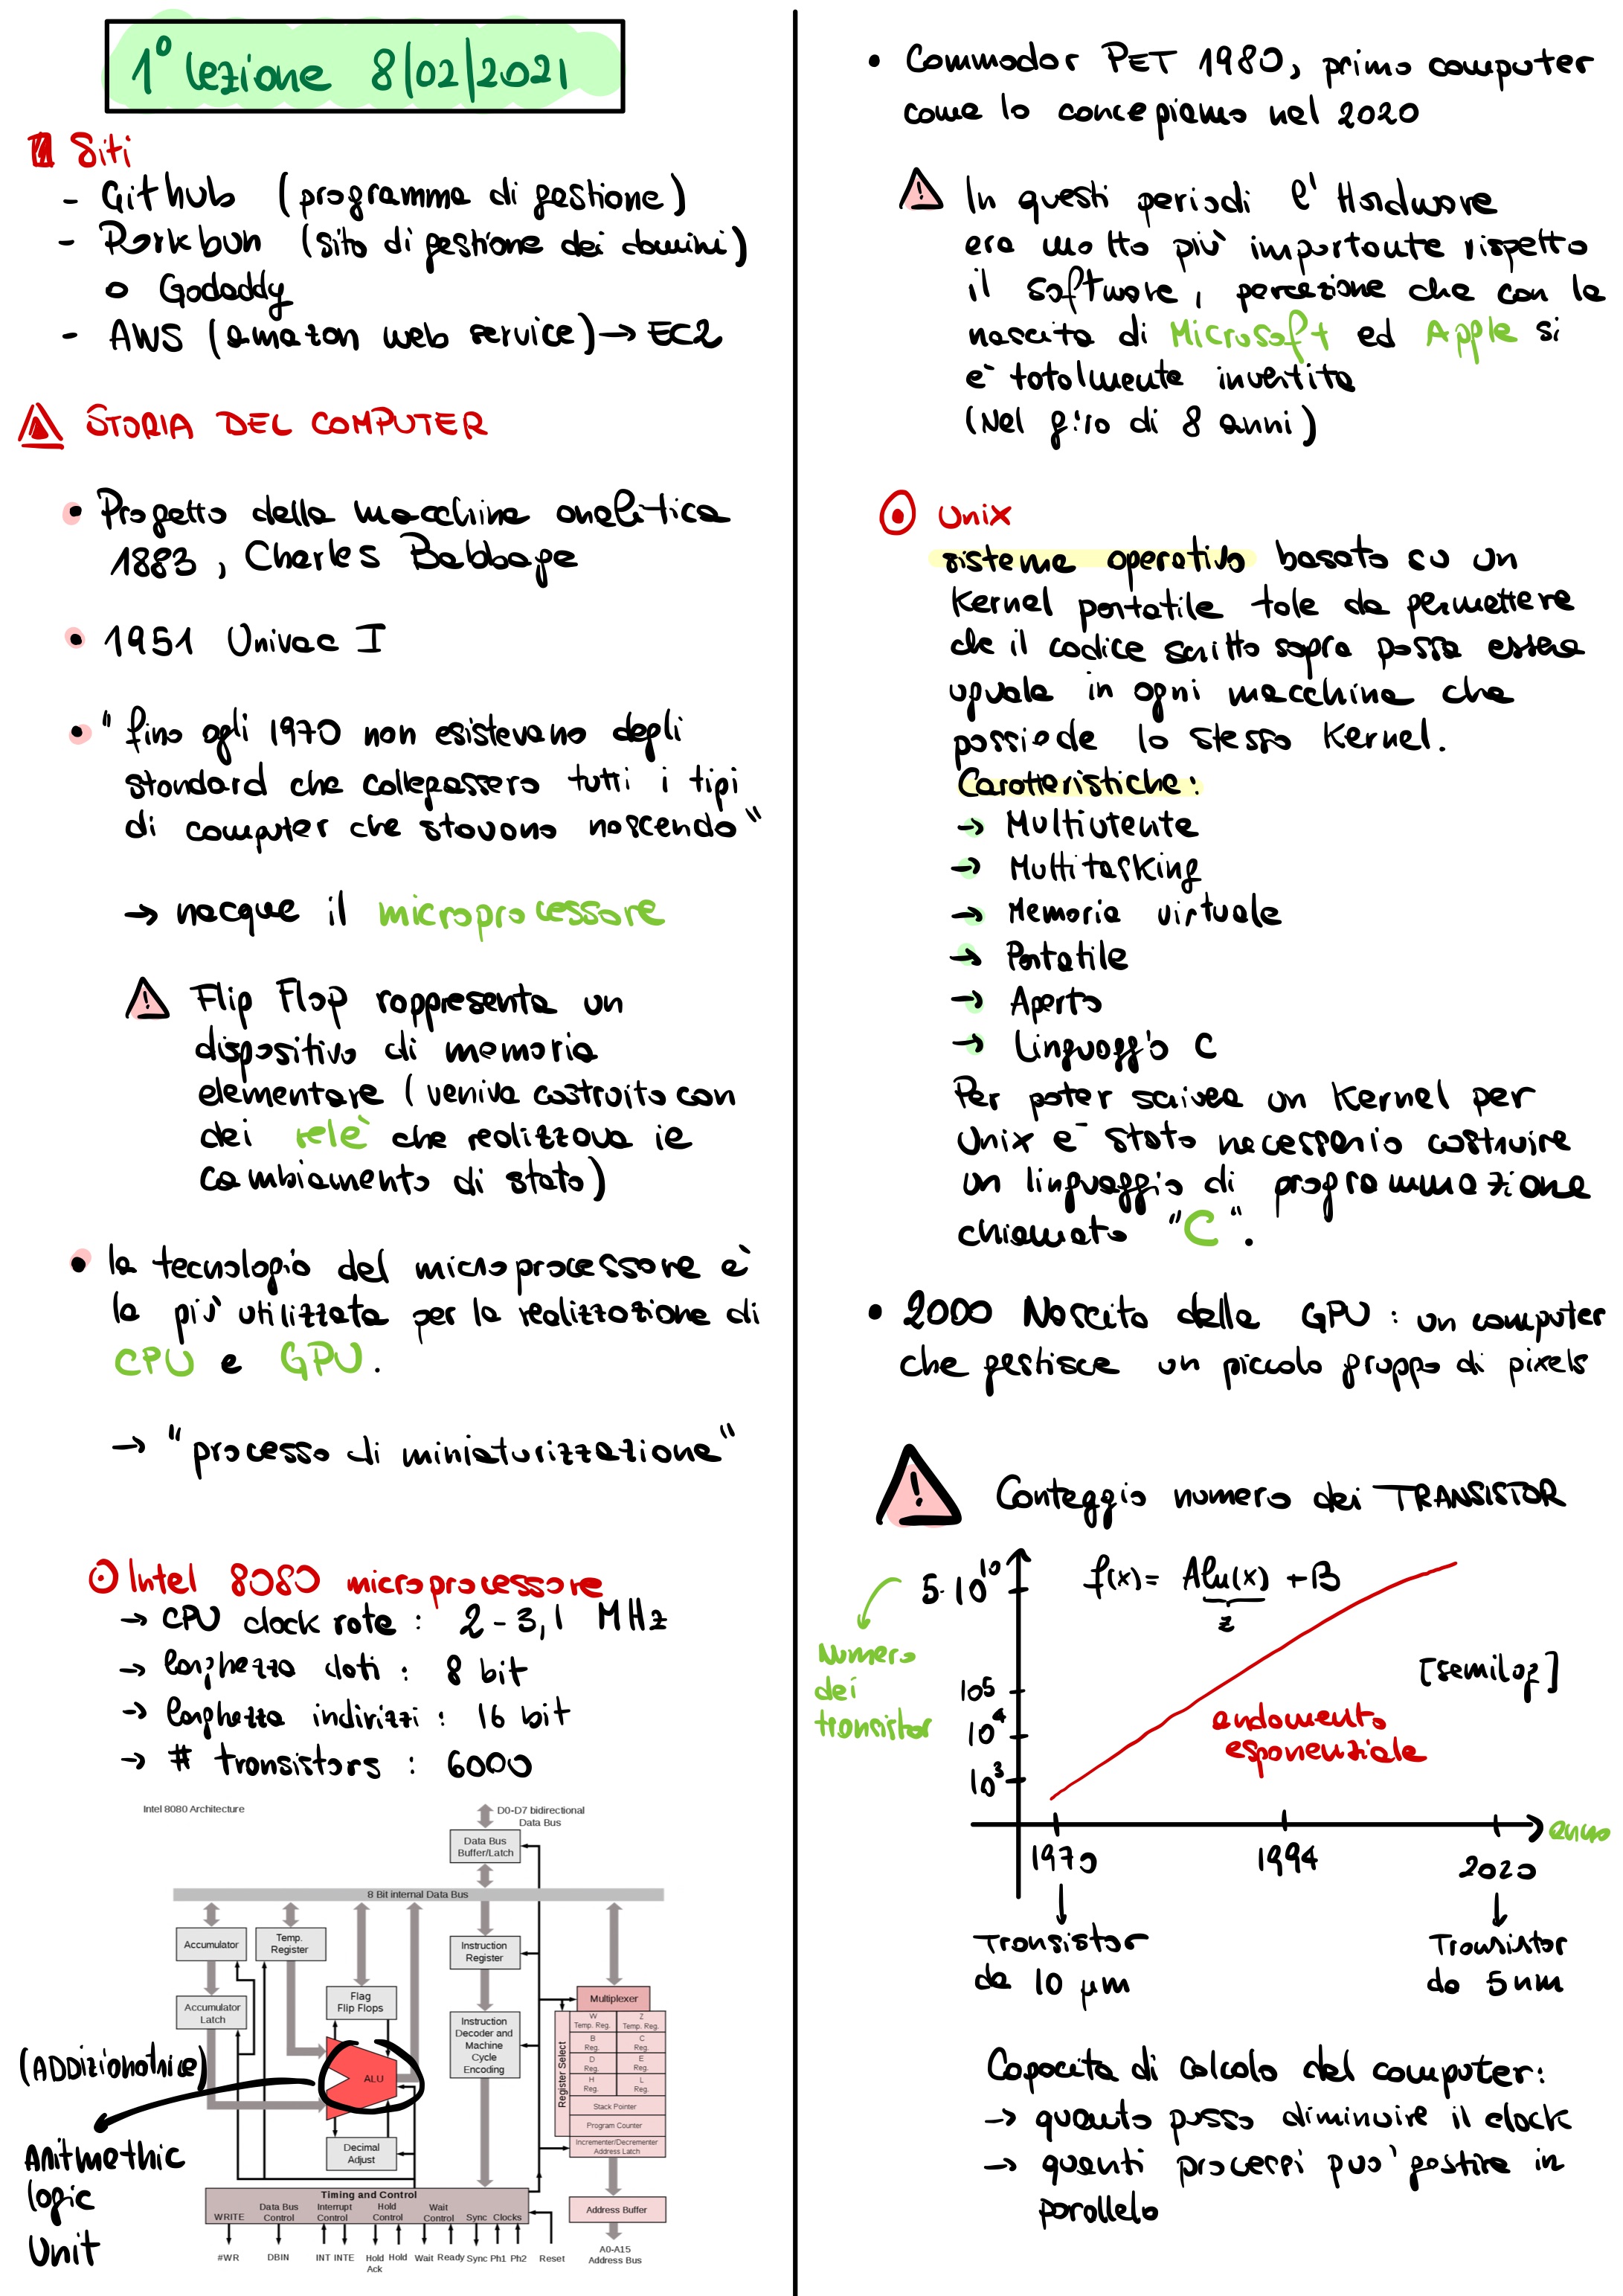 1° lezione 8/02/2021
Siti
- Github (programma di gestione)
- Porkbun (sito di gestione dei domini)
o Godaddy
- AWS (amazon web service) → EC2
STORIA DEL COMPUTER
• Progetto della macchina analitica
1883, Charles Babbage
• 1951 Univac I
• "fino agli 1970 non esistevano degli
standard che collegassero tutti i tipi
di computer che stavano nascendo"
→ nacque il microprocessore
Flip Flop rappresenta un
dispositivo di memoria
elementare (veniva costruito con
dei relè che realizzava ie
cambiamento di stato)
• la tecnologia del microprocessore è
la più utilizzata per la realizzazione di
CPU e GPU.
→ "processo di miniaturizzazione"
Intel 8080 microprocessore
→ CPU clock rate : 2-3,1 MHz
→ larghezza dati : 8 bit
→ larghezza indirizzi : 16 bit
→ # transistors : 6000
Intel 8080 Architecture
D0-D7 bidirectional
Data Bus
Data Bus
Buffer/Latch
8 Bit internal Data Bus
Accumulator
Temp.
Register
Instruction
Register
Accumulator
Latch
Flag
Flip Flops
Instruction
Decoder and
Machine
Cycle
Encoding
Multiplexer
W
Temp. Reg.
Z
Temp. Reg.
B
Reg.
C
Reg.
D
Reg.
E
Reg.
H
Reg.
L
Reg.
Register Select
Stack Pointer
Program Counter
Incrementer/Decrementer
Address Latch
ALU
(ADDizionatrice)
Aritmethic
logic
Unit
Decimal
Adjust
Timing and Control
WRITE
Data Bus
Control
Interrupt
Control
Hold
Control
Wait
Control
Sync
Clocks
Address Buffer
#WR
DBIN
INT
INTE
Hold
Ack
Hold
Wait
Ready
Sync
Ph1
Ph2
Reset
A0-A15
Address Bus
• Commodor PET 1980, primo computer
come lo concepiamo nel 2020
! In questi periodi l'Hardware
era molto più importante rispetto
il software, percezione che con la
nascita di Microsoft ed Apple si
è totalmente invertita
(Nel giro di 8 anni)
Unix
sistema operativo basato su un
Kernel portatile tale da permettere
che il codice scritto sopra possa essere
uguale in ogni macchina che
possiede lo stesso Kernel.
Caratteristiche:
→ Multiutente
→ Multitasking
→ Memoria virtuale
→ Portatile
→ Aperto
→ Linguaggio C
Per poter scivea un Kernel per
Unix è stato necessario costruire
un linguaggio di programmazione
chiamato "C".
• 2000 Nascita della GPU : un computer
che gestisce un piccolo gruppo di pixels
! Conteggio numero dei TRANSISTOR
5·10¹⁰
f(x) = Aln(x) + B
z
Numero
dei
transistor
[semilog]
10⁵
10⁴
10³
andamento
esponenziale
anno
1970
1994
2020
Transistor
da 10 μm
Transistor
da 5 nm
Capacità di calcolo del computer:
→ quanto posso diminuire il clock
→ quanti processi può gestire in
parallelo